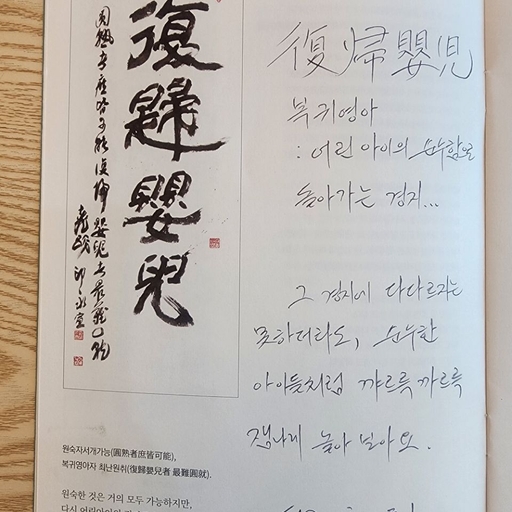 復歸嬰兒
圓熟者庶皆可能復歸嬰兒者最難圓就
復帰嬰児
복귀영아
: 어린 아이의 순수함으로
돌아가는 경지...
그 경지에 다다르지는
못하더라도, 순수한
아이들처럼 꺄르륵 까르륵
잼나게 놀아 보아요.
원숙자서개가능(圓熟者庶皆可能),
복귀영아자 최난원취(復歸嬰兒者 最難圓就).
원숙한 것은 거의 모두 가능하지만,